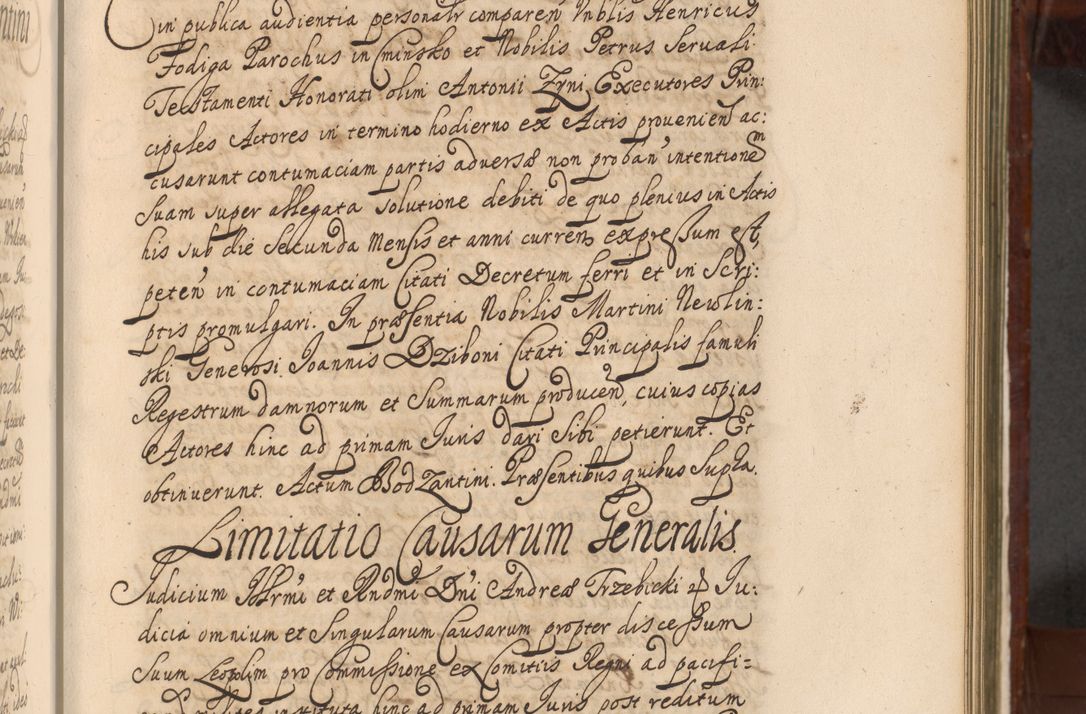 in publica audientia personalr comparen Vnblis Henricus
Fodiga Parochus in Cminsko et Nobilis Petrus Servali
Testamenti Honorati olim Antonii Zyni Executores Prin:
cipales Actores in termino hodierno ex Actis provenien ac:
cusarunt contumaciam partis adversæ non proban intentionem
Suam super allegata solutione debiti de quo plenius in Actis
his sub die Secunda Mensis et anni curren expressum est,
peten in contumaciam Citati Decretum ferri et in Scri:
ptis promulgari. In præsentia Nobilis Martini Newlin:
ski Generosi Joannis Dziboni Citati Principalis famuli
Regestrum damnorum et Summarum producen, cuius copias
Actores hinc ad primam Juris dari Sibi petierunt. Et
obtinuerunt. Actum Bodzantini. Præsentibus quibus Supra.
Limitatio Causarum Generalis.
Judicium Illrmi et Rndmi Dni Andreæ Trzebicki Ju:
dicia omnium et Singularum Causarum propter discessum
Suum Leopolim pro Commissione ex Comitiis Regni ad pacifi=
instituta hinc ad primam Juris post reditum